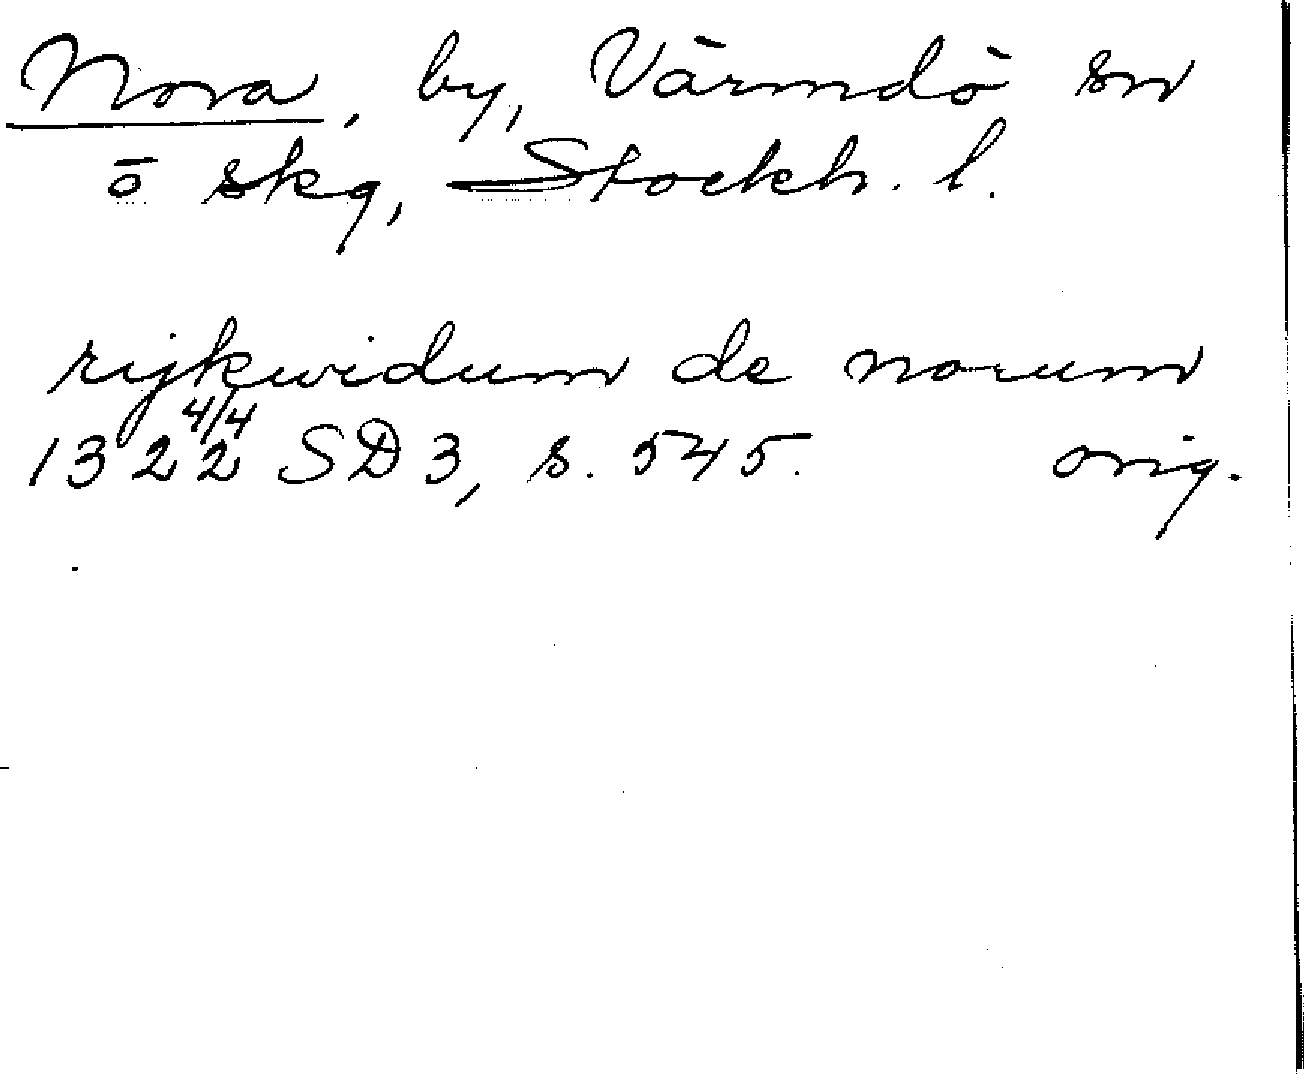 Nora, by, Värmdö sn
ö skg, Stockh. l.
rijkwidum de norum
1322 4/4 SD 3, s. 545. orig.